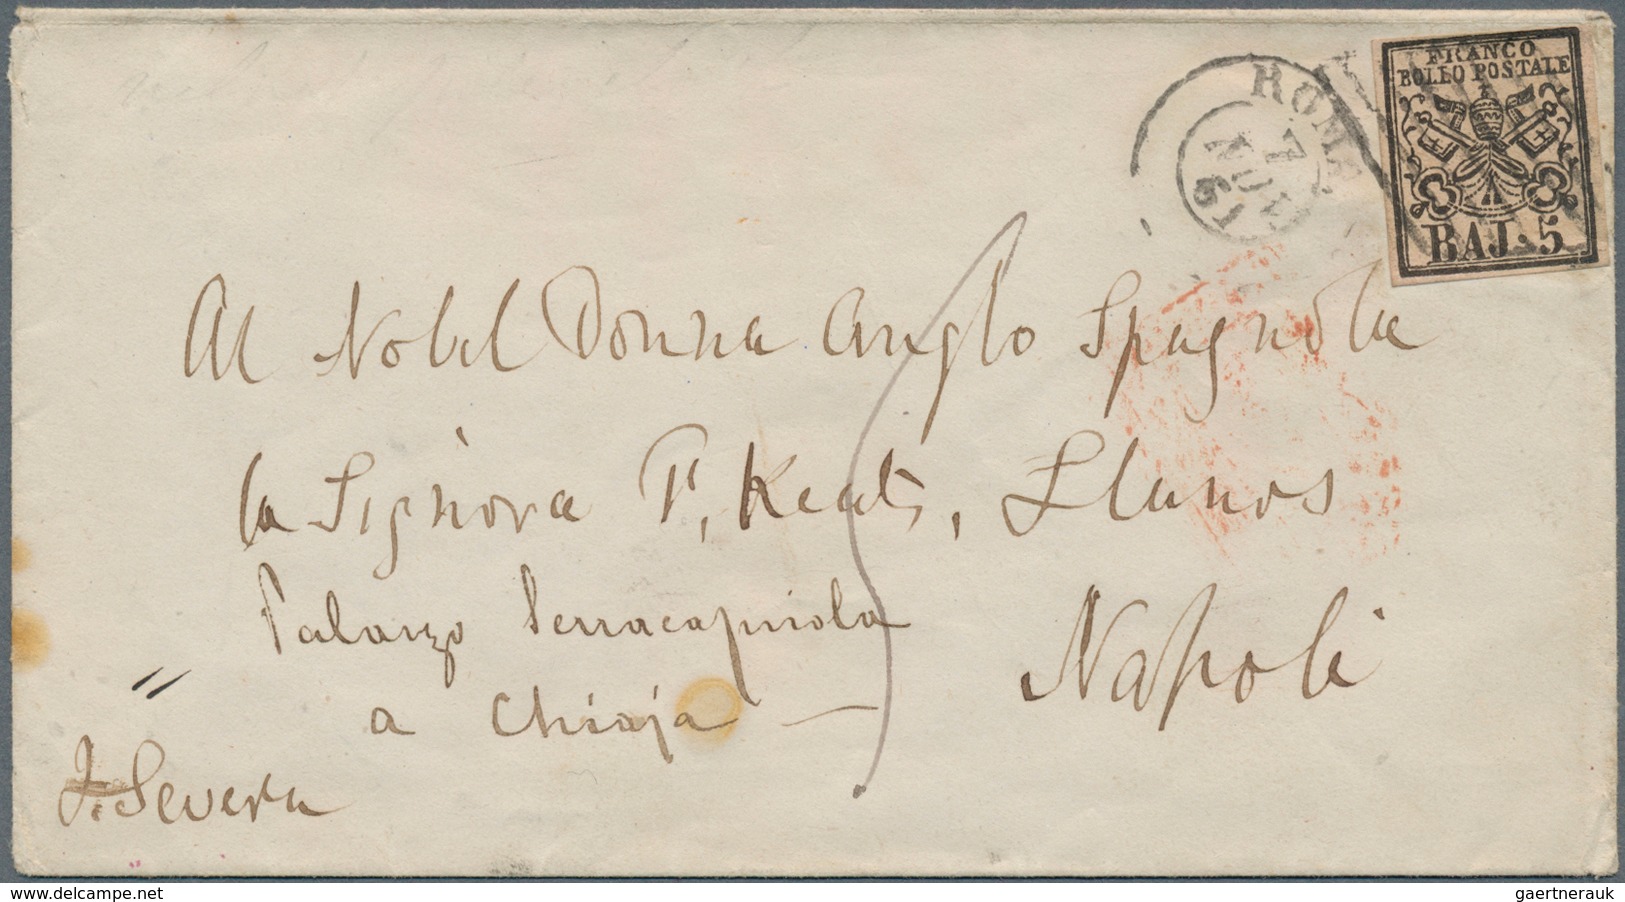 FRANCO
BOLLO POSTALE
BAJ. 5
ROMA
7
NOV
61
Al Nobel Donna Anglo Spagnola
la Signora F, Keats, Llanos
Palazzo Serracapriola
a Chiaja —
Napoli
J. Severn
delcampe.net
gaertnerauk